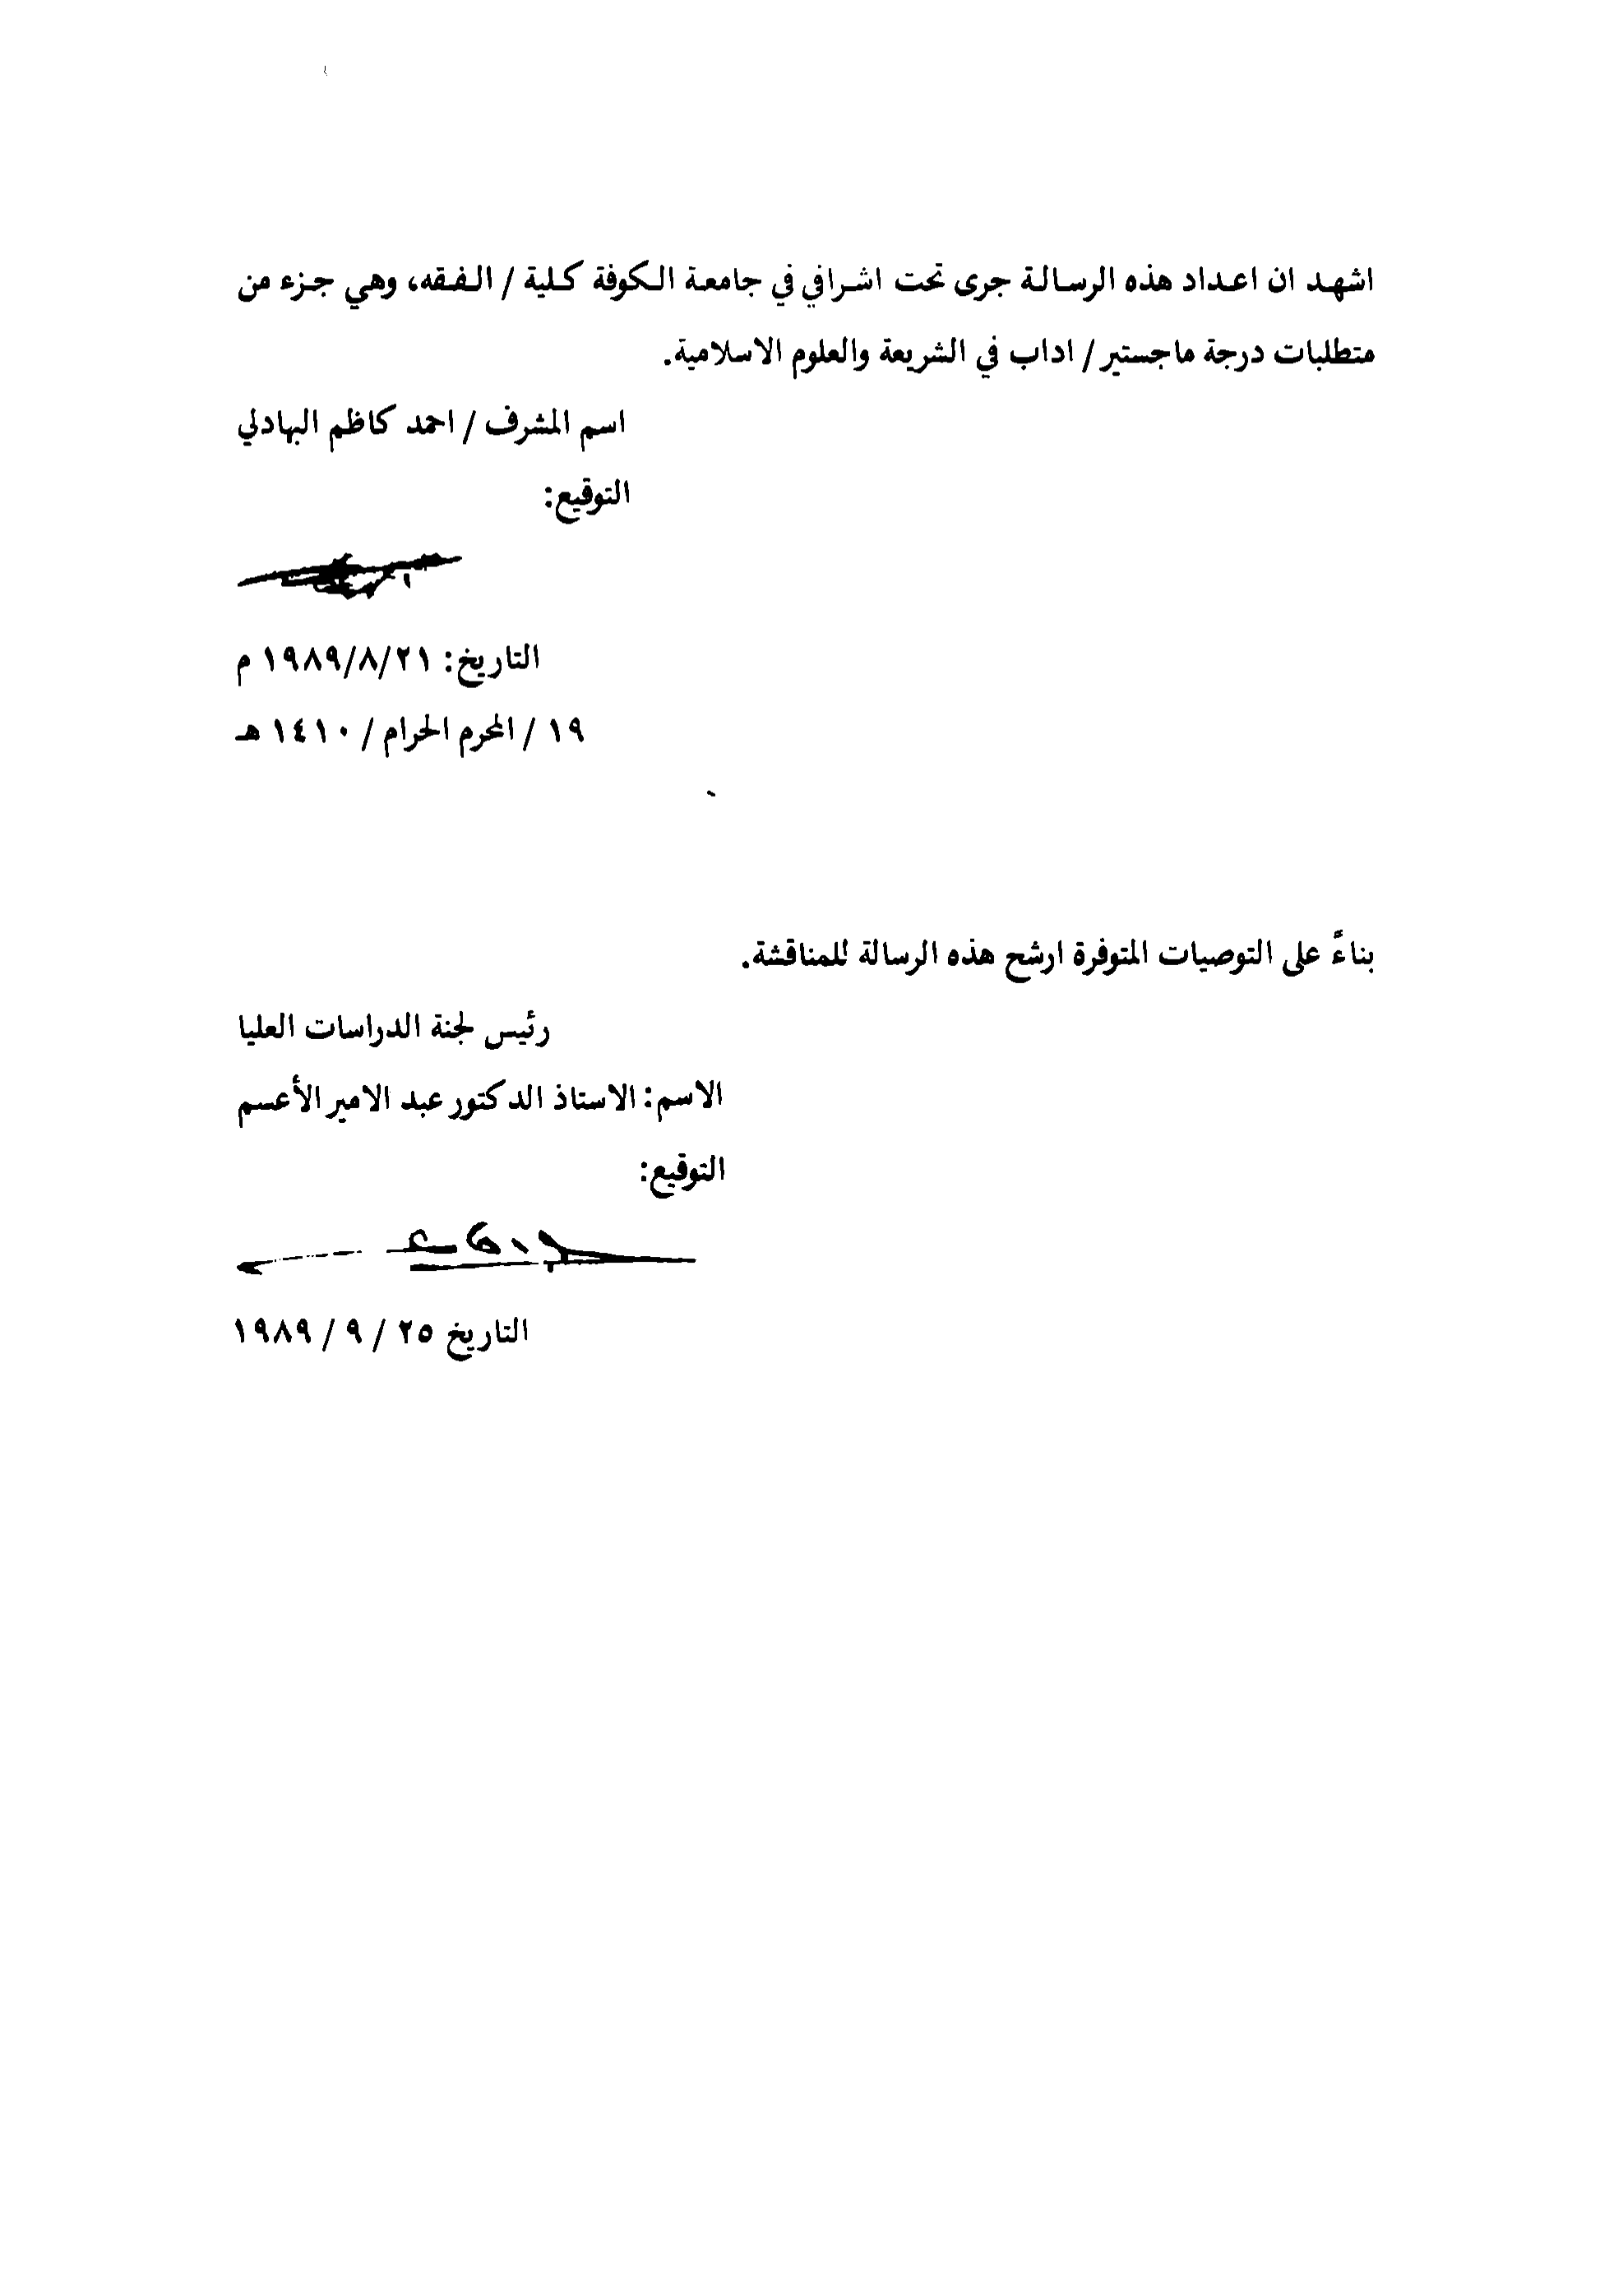 اشهد ان اعداد هذه الرسالة جرى تحت اشرافي في جامعة الكوفة كلية / الفقه، وهي جزء من
متطلبات درجة ماجستير / اداب في الشريعة والعلوم الاسلامية.
اسم المشرف / احمد كاظم البهادلي
التوقيع:
التاريخ: ١٩٨٩/٨/٢١ م
١٩ / المحرم الحرام / ١٤١٠ هـ
بناءً على التوصيات المتوفرة ارشح هذه الرسالة للمناقشة.
رئيس لجنة الدراسات العليا
الاسم: الاستاذ الدكتور عبد الامير الأعسم
التوقيع:
التاريخ ٢٥ / ٩ / ١٩٨٩